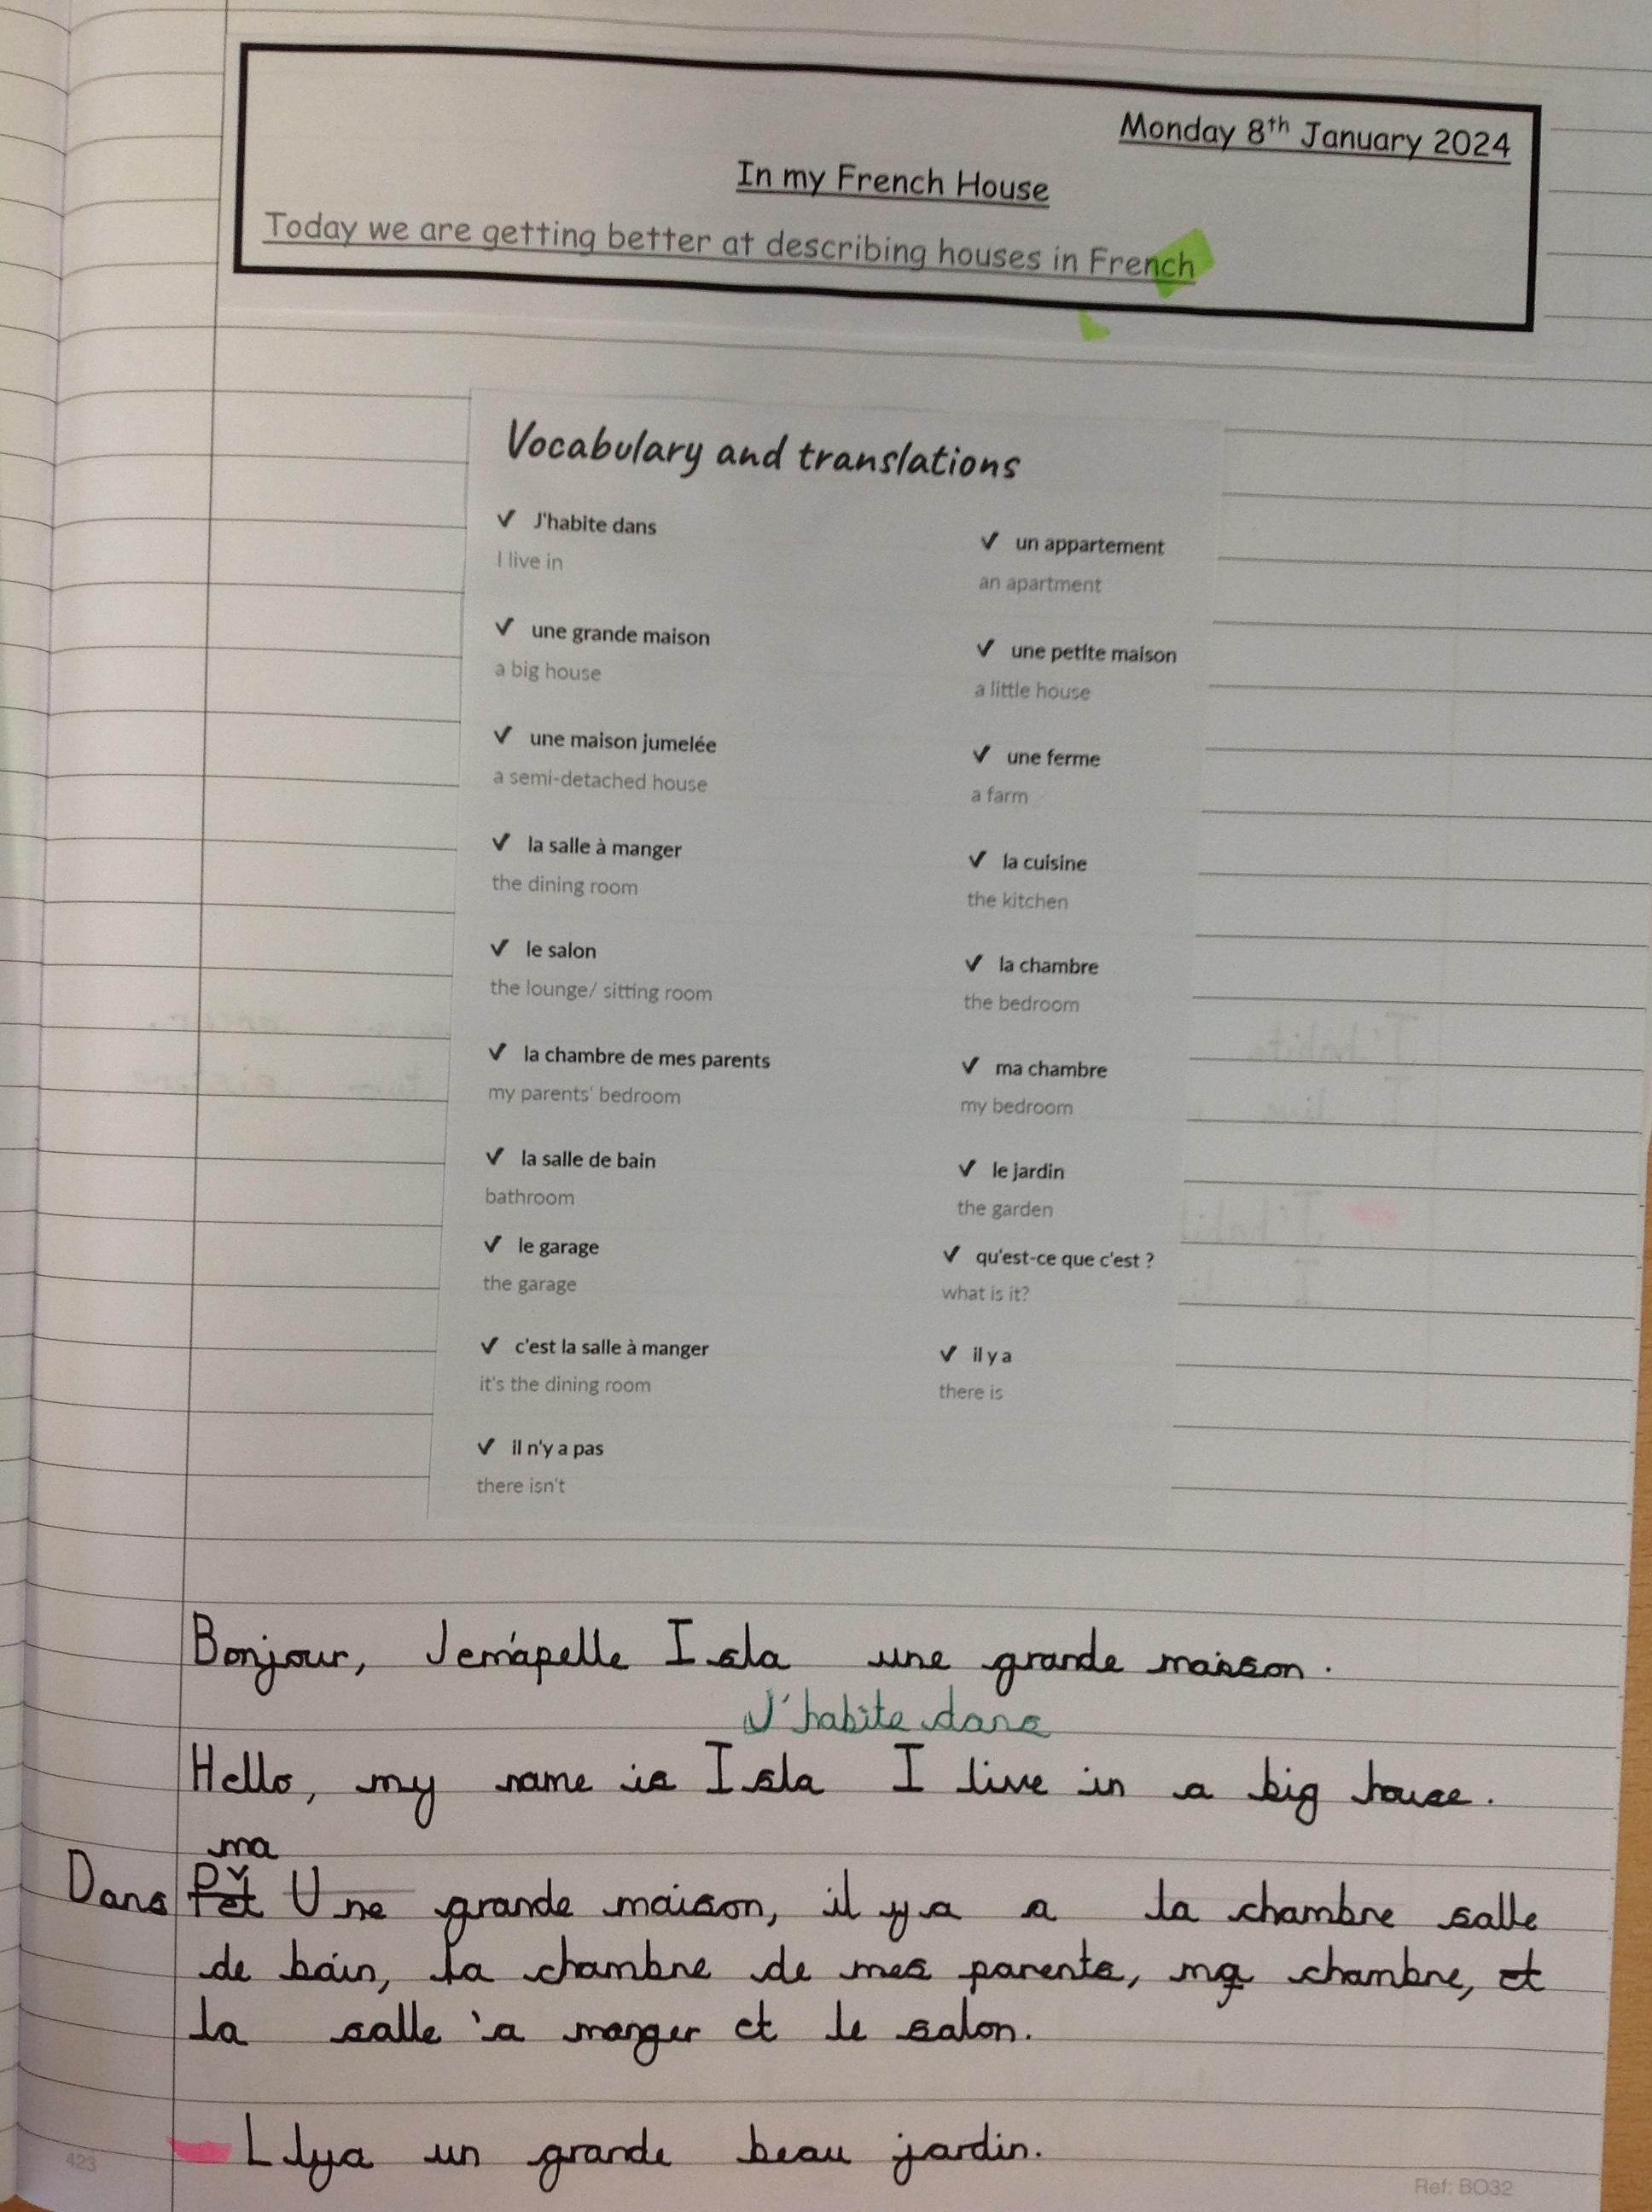 Monday 8th January 2024
In my French House
Today we are getting better at describing houses in French
Vocabulary and translations
✓ J'habite dans
I live in
✓ un appartement
an apartment
✓ une grande maison
a big house
✓ une petite maison
a little house
✓ une maison jumelée
a semi-detached house
✓ une ferme
a farm
✓ la salle à manger
the dining room
✓ la cuisine
the kitchen
✓ le salon
the lounge/ sitting room
✓ la chambre
the bedroom
✓ la chambre de mes parents
my parents' bedroom
✓ ma chambre
my bedroom
✓ la salle de bain
bathroom
✓ le jardin
the garden
✓ le garage
the garage
✓ qu'est-ce que c'est ?
what is it?
✓ c'est la salle à manger
it's the dining room
✓ il y a
there is
✓ il n'y a pas
there isn't
Bonjour, Jem'apelle Isla une grande maison.
J'habite dans
Hello, my name is Isla I live in a big house.
ma
Dans Pet Une grande maison, il y a a la chambre salle
de bain, la chambre de mes parents, ma chambre, et
la salle 'a manger et le salon.
Ilya un grande beau jardin.
423
Ref: BO32